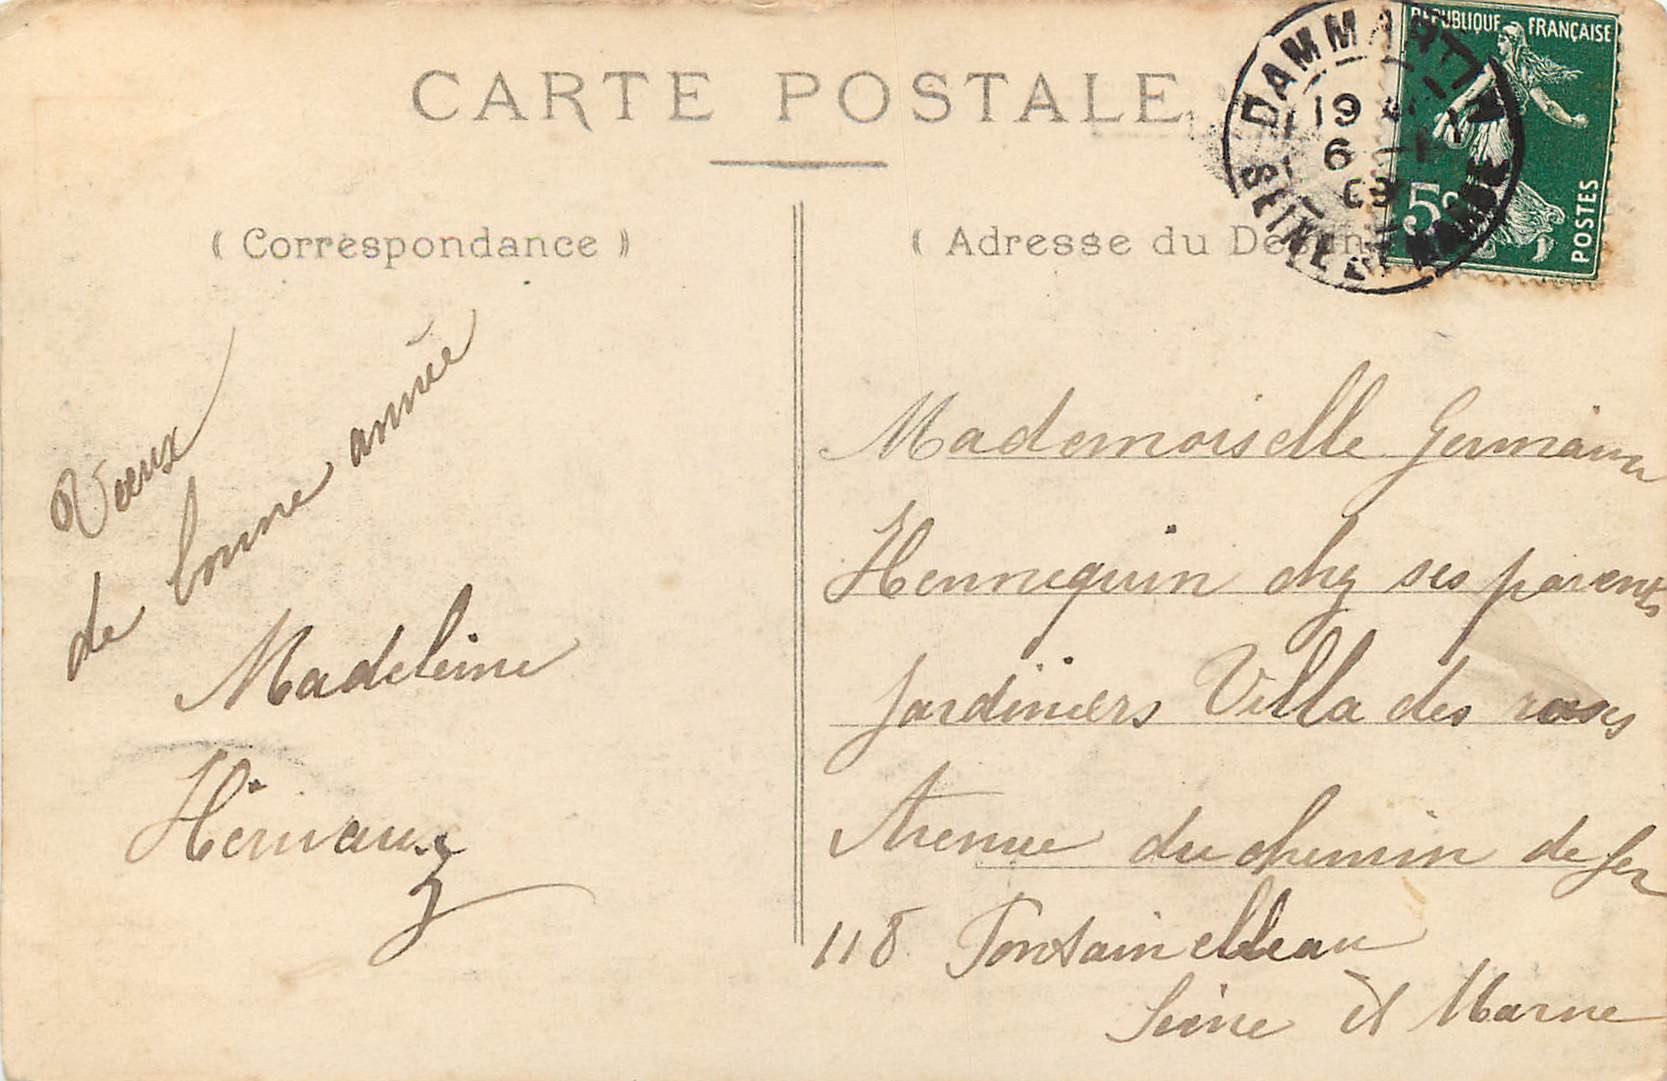 CARTE POSTALE
( Correspondance )
Voeux
de bonne année
Madeleine
( Adresse du
DAMMARTIN
19
6 -1
09
SEINE ET MARNE
REPUBLIQUE FRANÇAISE
5c
POSTES
Mademoiselle Germaine
Hennequin chez ses parents
jardiniers Villa des roses
Avenue du chemin de fer
118 Fontainebleau
Seine et Marne